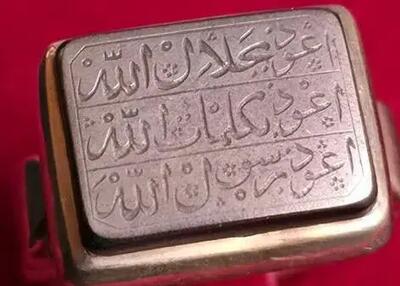 اعوذ بجلال الله
اعوذ بكلمات الله
اعوذ برسول الله